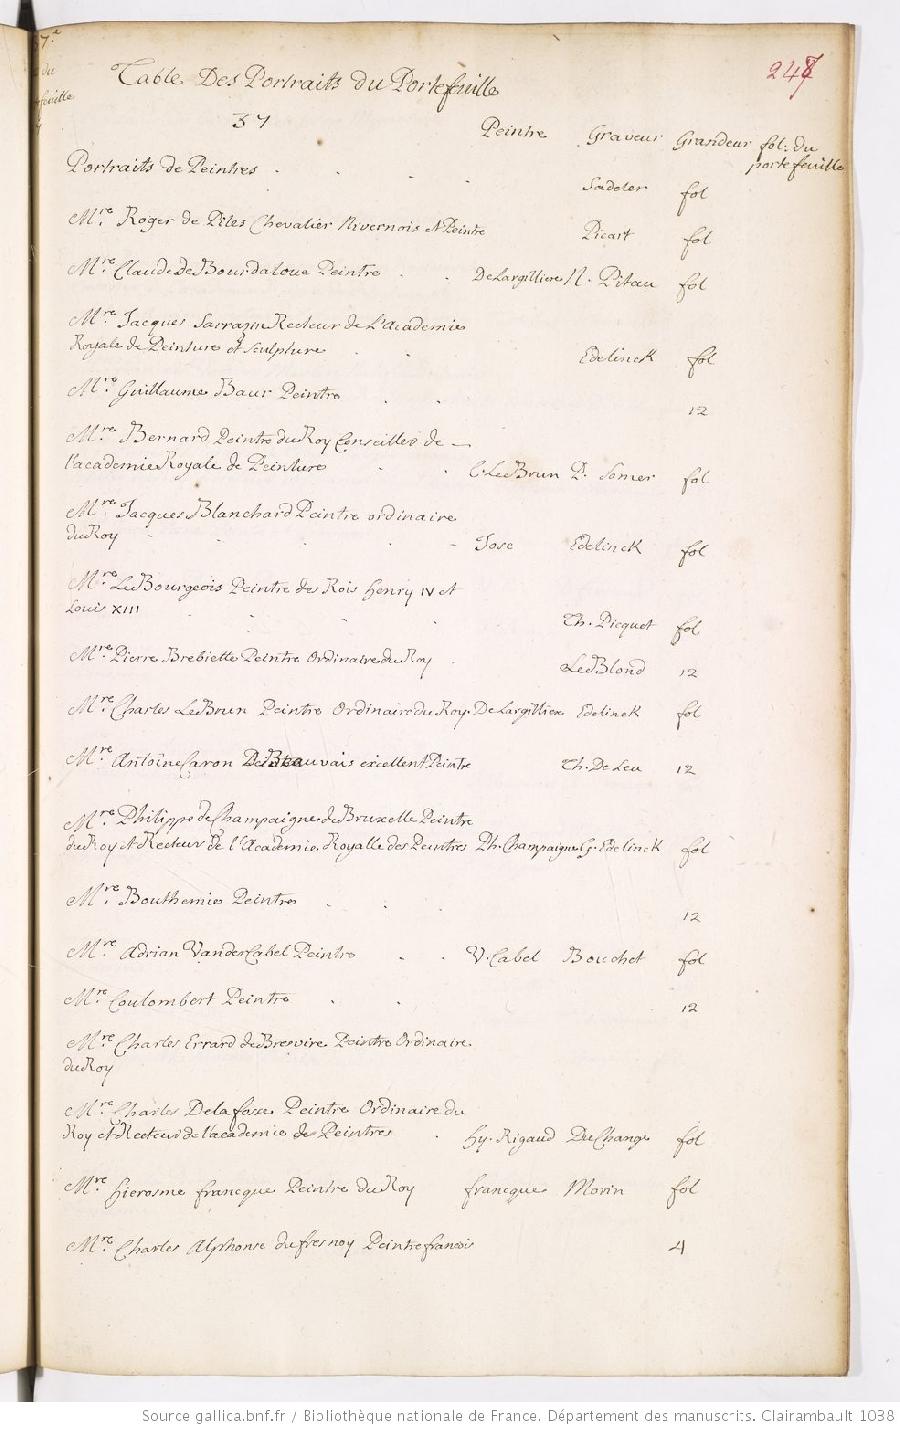 247
Table Des Portraits du Portefeuille
37
Peintre Graveur Grandeur fol. du portefeuille
Portraits de Peintres . . . . Sadeler fol
Mre. Roger de Piles Chevalier Nivernois et Peintre Picart fol
Mre. Claude De Bourdaloue Peintre . . De Largilliere N. Pitau fol
Mre. Jacques Sarrazin Recteur de L'academie
Royale de Peinture et sculpture . . Edelinck fol
Mre. Guillaume Baur Peintre . . 12
Mre. Bernard Peintre du Roy Conseiller de –
l'academie Royale de Peinture . . C. Le Brun P. Somer fol
Mre. Jacques Blanchard Peintre ordinaire
du Roy . . . . – Jose Edelinck fol
Mre. Le Bourgeois Peintre des Rois henry IV et
Louis XIII . . . . Th. Picquet fol
Mre. Pierre Brebiette Peintre Ordinaire du Roy . Le Blond 12
Mre. Charles Le Brun Peintre Ordinaire du Roy. De Largilliere Edelinck fol
Mre. Antoine Caron De Beauvais excellent Peintre Th. De Leu 12
Mre. Philippe de Champaigne de Bruxelle Peintre
du Roy et Recteur de l'Academie Royalle des Peintres Ph. Champaigne G. Edelinck fol
Mre. Bouthemie Peintre . . . 12
Mre. Adrian Vander Cabel Peintre . . V. Cabel Bouchet fol
Mre. Coulombert Peintre . . 12
Mre. Charles Errard de Bresvire Peintre Ordinaire
du Roy
Mre. Charles Delafosse Peintre Ordinaire du
Roy et Recteur de l'academie de Peintres . hy. Rigaud Du Change fol
Mre. hierosme francque Peintre du Roy francque Morin fol
Mre. Charles Alphonse du fresnoy Peintre francois 4
Source gallica.bnf.fr / Bibliothèque nationale de France. Département des manuscrits. Clairambault 1038